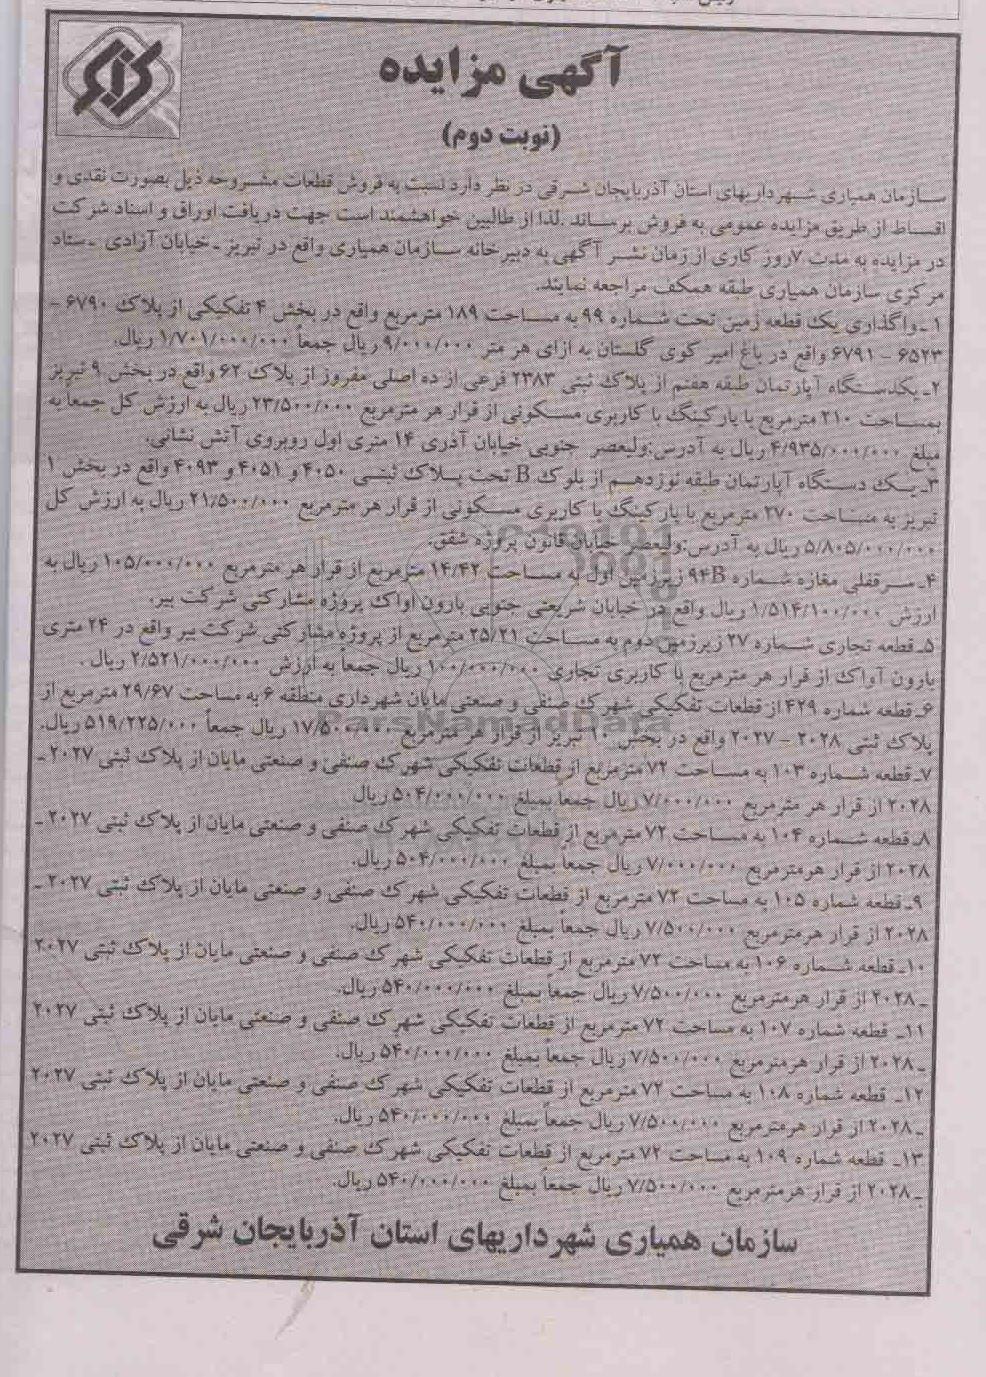 آگهی مزایده
(نوبت دوم)
سازمان همیاری شهرداریهای استان آذربایجان شرقی در نظر دارد نسبت به فروش قطعات مشروحه ذیل بصورت نقدی و
اقساط از طریق مزایده عمومی به فروش برساند .لذا از طالبین خواهشمند است جهت دریافت اوراق و اسناد شرکت
در مزایده به مدت ۷روز کاری از زمان نشر آگهی به دبیرخانه سازمان همیاری واقع در تبریز ـ خیابان آزادی ـ ستاد
مرکزی سازمان همیاری طبقه همکف مراجعه نمایند.
۱ ـ واگذاری یک قطعه زمین تحت شماره ۹۹ به مساحت ۱۸۹ مترمربع واقع در بخش ۴ تفکیکی از پلاک ۶۷۹۰ –
۶۵۲۳ – ۶۷۹۱ واقع در باغ امیر کوی گلستان به ازای هر متر ۹/۰۰۰/۰۰۰ ریال جمعاً ۱/۷۰۱/۰۰۰/۰۰۰ ریال.
۲ـ یکدستگاه آپارتمان طبقه هفتم از پلاک ثبتی ۲۳۸۳ فرعی از ده اصلی مفروز از پلاک ۶۲ واقع در بخش ۹ تبریز
بمساحت ۲۱۰ مترمربع با پارکینگ با کاربری مسکونی از قرار هر مترمربع ۲۳/۵۰۰/۰۰۰ ریال به ارزش کل جمعا به
مبلغ ۴/۹۳۵/۰۰۰/۰۰۰ ریال به آدرس:ولیعصر جنوبی خیابان آذری ۱۴ متری اول روبروی آتش نشانی.
۳ـ یک دستگاه آپارتمان طبقه نوزدهم از بلوک B تحت پلاک ثبتی ۴۰۵۰ و ۴۰۵۱ و ۴۰۹۳ واقع در بخش ۱
تبریز به مساحت ۲۷۰ مترمربع با پارکینگ با کاربری مسکونی از قرار هر مترمربع ۲۱/۵۰۰/۰۰۰ ریال به ارزش کل
۵/۸۰۵/۰۰۰/۰۰۰ ریال به آدرس:ولیعصر خیابان قانون پروژه شفق.
۴ـ سرقفلی مغازه شماره ۹۴B زیرزمین اول به مساحت ۱۴/۴۲ مترمربع از قرار هر مترمربع ۱۰۵/۰۰۰/۰۰۰ ریال به
ارزش ۱/۵۱۴/۱۰۰/۰۰۰ ریال واقع در خیابان شریعتی جنوبی بارون اواک پروژه مشارکتی شرکت بیر.
۵ـ قطعه تجاری شماره ۲۷ زیرزمین دوم به مساحت ۲۵/۲۱ مترمربع از پروژه مشارکتی شرکت بیر واقع در ۲۴ متری
بارون آواک از قرار هر مترمربع با کاربری تجاری ۱۰۰/۰۰۰/۰۰۰ ریال جمعاً به ارزش ۲/۵۲۱/۰۰۰/۰۰۰ ریال .
۶ـ قطعه شماره ۴۲۹ از قطعات تفکیکی شهرک صنفی و صنعتی مایان شهرداری منطقه ۶ به مساحت ۲۹/۶۷ مترمربع از
پلاک ثبتی ۲۰۲۸ – ۲۰۲۷ واقع در بخش ۱۰ تبریز از قرار هر مترمربع ۱۷/۵۰۰/۰۰۰ ریال جمعاً ۵۱۹/۲۲۵/۰۰۰ ریال.
ParsNamadData
۷ـ قطعه شماره ۱۰۳ به مساحت ۷۲ مترمربع از قطعات تفکیکی شهرک صنفی و صنعتی مایان از پلاک ثبتی ۲۰۲۷ ـ
۲۰۲۸ از قرار هر مترمربع ۷/۰۰۰/۰۰۰ ریال جمعاً بمبلغ ۵۰۴/۰۰۰/۰۰۰ ریال
۸ـ قطعه شماره ۱۰۴ به مساحت ۷۲ مترمربع از قطعات تفکیکی شهرک صنفی و صنعتی مایان از پلاک ثبتی ۲۰۲۷ ـ
۲۰۲۸ از قرار هرمترمربع ۷/۰۰۰/۰۰۰ ریال جمعاً بمبلغ ۵۰۴/۰۰۰/۰۰۰ ریال.
۹ـ قطعه شماره ۱۰۵ به مساحت ۷۲ مترمربع از قطعات تفکیکی شهرک صنفی و صنعتی مایان از پلاک ثبتی ۲۰۲۷ ـ
۲۰۲۸ از قرار هرمترمربع ۷/۵۰۰/۰۰۰ ریال جمعاً بمبلغ ۵۴۰/۰۰۰/۰۰۰ ریال.
۱۰ـ قطعه شماره ۱۰۶ به مساحت ۷۲ مترمربع از قطعات تفکیکی شهرک صنفی و صنعتی مایان از پلاک ثبتی ۲۰۲۷
ـ ۲۰۲۸ از قرار هرمترمربع ۷/۵۰۰/۰۰۰ ریال جمعاً بمبلغ ۵۴۰/۰۰۰/۰۰۰ ریال.
۱۱ـ قطعه شماره ۱۰۷ به مساحت ۷۲ مترمربع از قطعات تفکیکی شهرک صنفی و صنعتی مایان از پلاک ثبتی ۲۰۲۷
ـ ۲۰۲۸ از قرار هرمترمربع ۷/۵۰۰/۰۰۰ ریال جمعاً بمبلغ ۵۴۰/۰۰۰/۰۰۰ ریال.
۱۲ـ قطعه شماره ۱۰۸ به مساحت ۷۲ مترمربع از قطعات تفکیکی شهرک صنفی و صنعتی مایان از پلاک ثبتی ۲۰۲۷
ـ ۲۰۲۸ از قرار هرمترمربع ۷/۵۰۰/۰۰۰ ریال جمعاً بمبلغ ۵۴۰/۰۰۰/۰۰۰ ریال.
۱۳ـ قطعه شماره ۱۰۹ به مساحت ۷۲ مترمربع از قطعات تفکیکی شهرک صنفی و صنعتی مایان از پلاک ثبتی ۲۰۲۷
ـ ۲۰۲۸ از قرار هرمترمربع ۷/۵۰۰/۰۰۰ ریال جمعاً بمبلغ ۵۴۰/۰۰۰/۰۰۰ ریال.
سازمان همیاری شهرداریهای استان آذربایجان شرقی